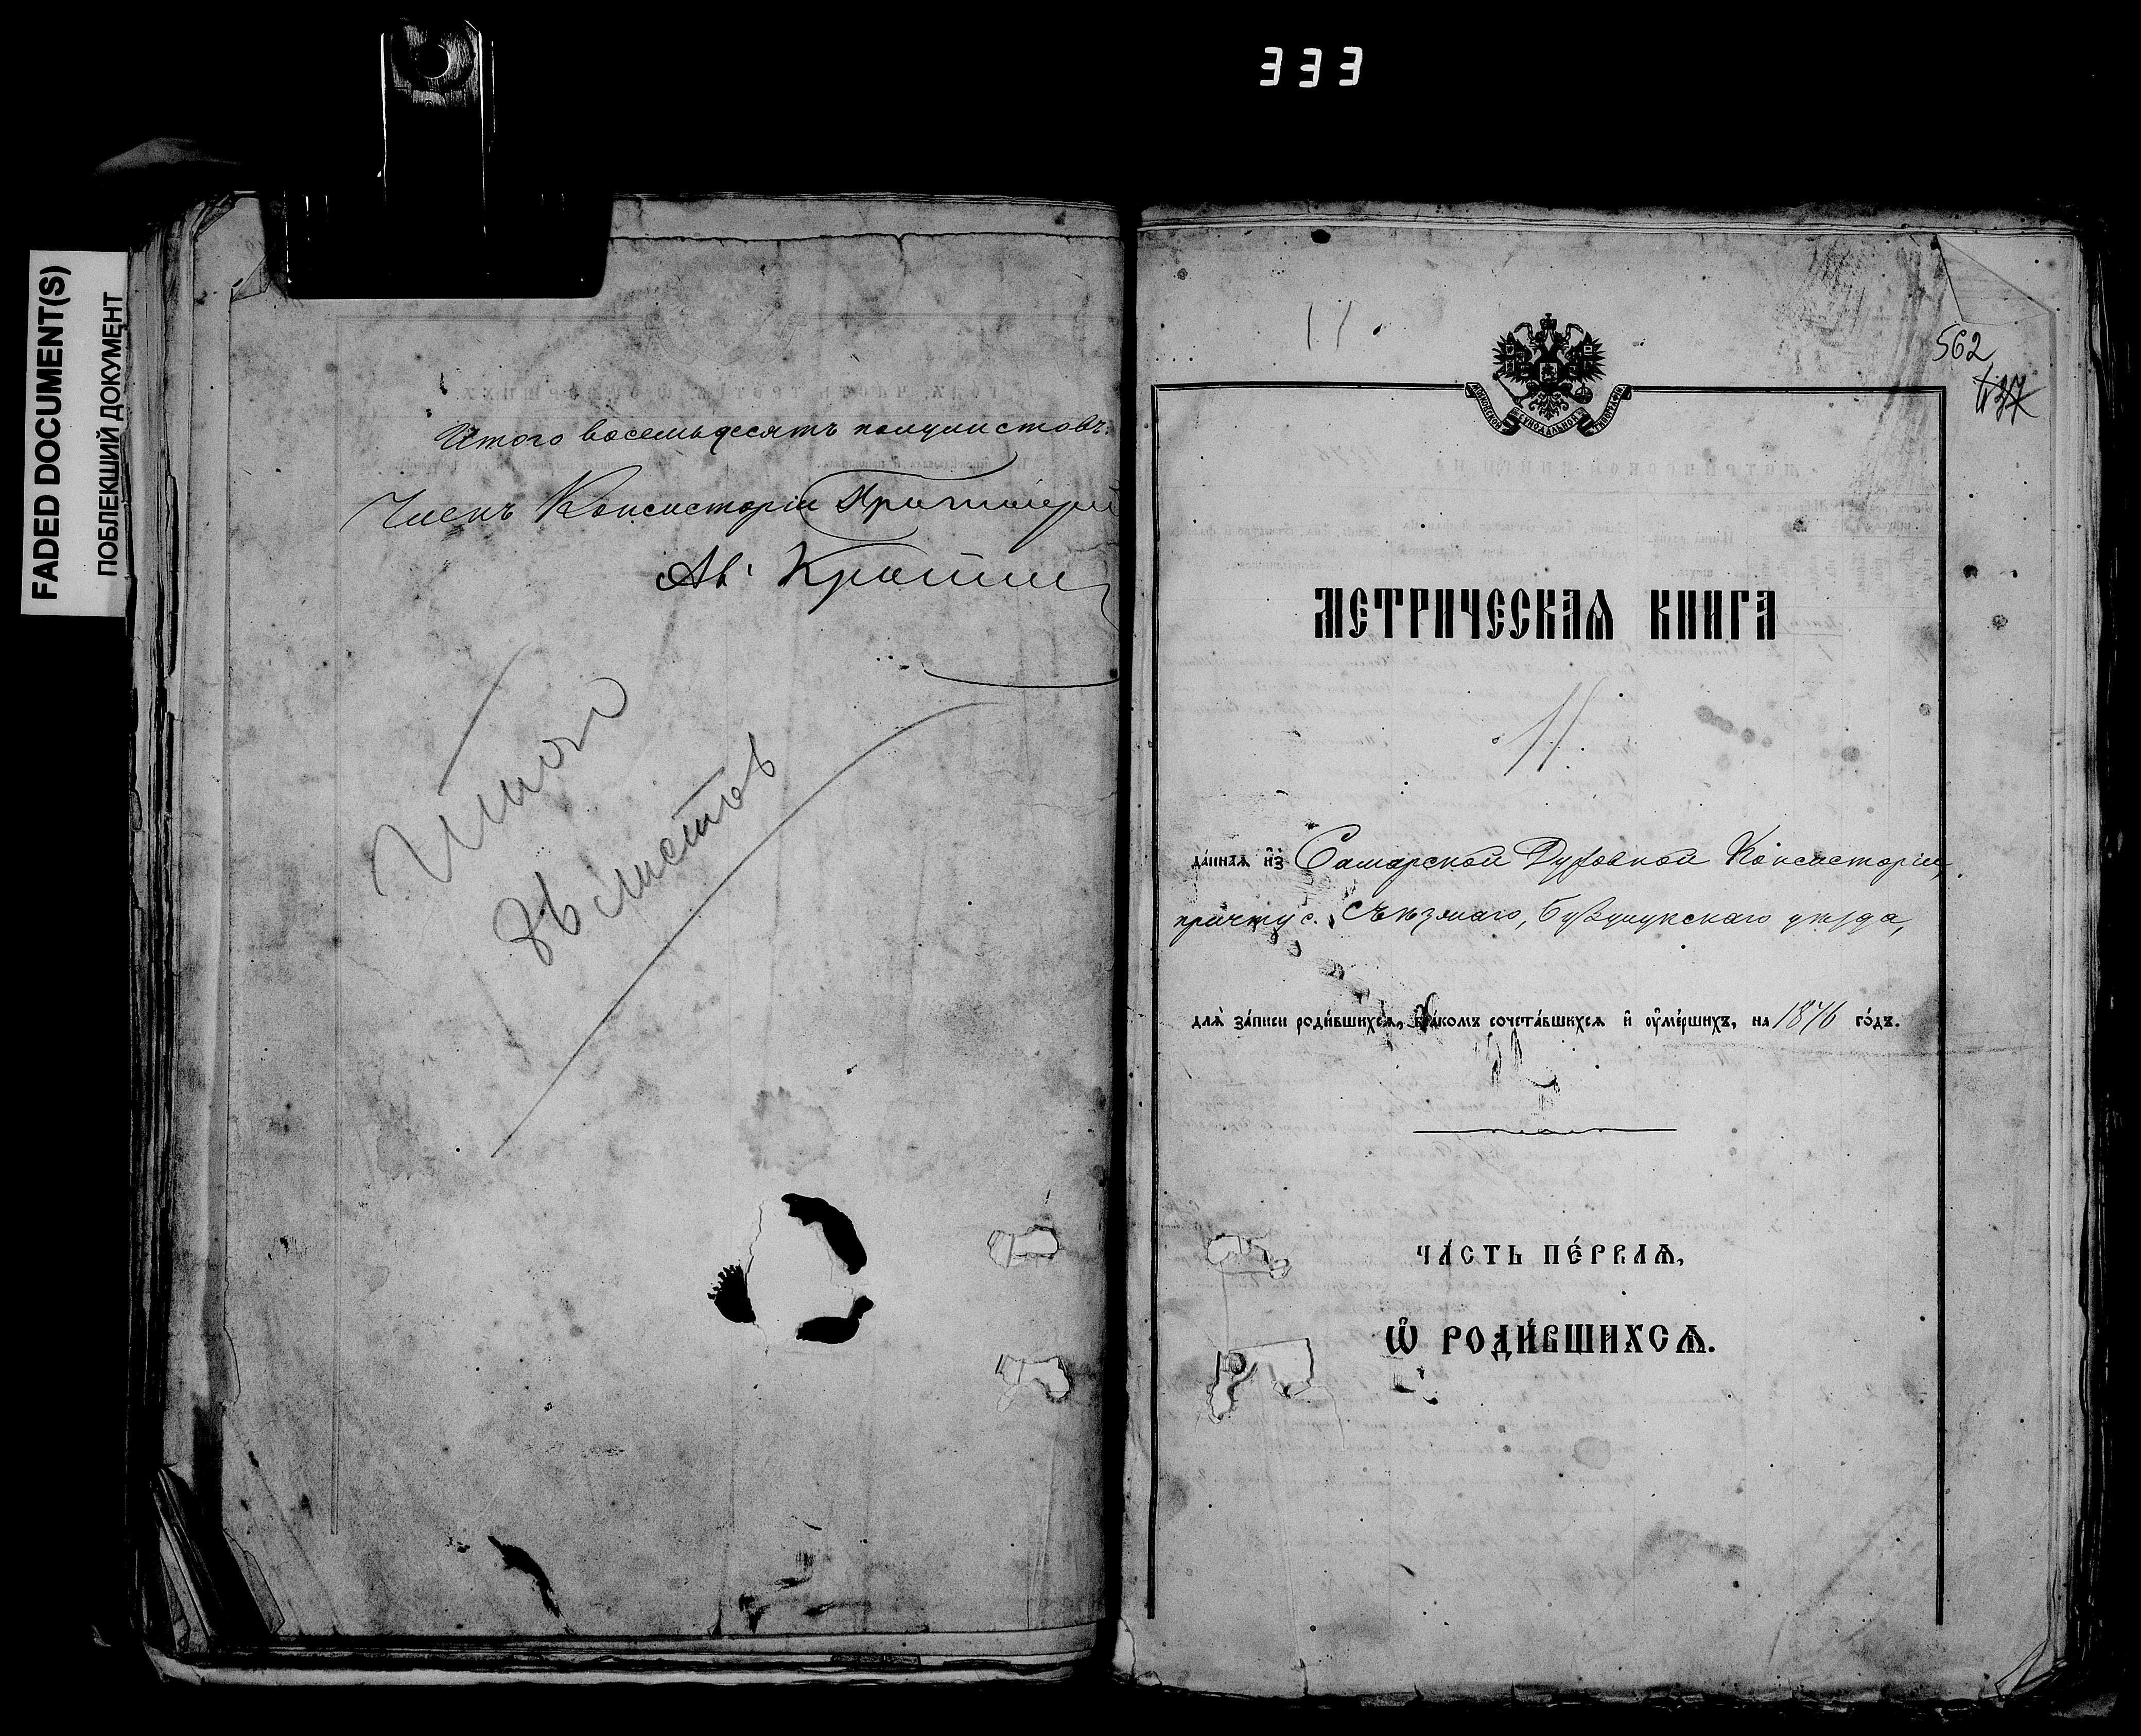 333
FADED DOCUMENT(S)
ПОБЛЕКШИЙ ДОКУМЕНТ
Итого восемьдесятъ полулистовъ.
Членъ Консисторіи Протоіерей
Ав. Кротк
Итого
86 листов
11.
562
МОСКОВСКОЙ СѴНОДАЛЬНОЙ ТИПОГРАФІИ
МЕТРИЧЕСКАѦ КНИГА
11.
да́ннаѧ и҆з̾ Самарской Духовной Консисторіи,
причту с. Съезжаго, Бузулукскаго уѣзда,
длѧ̀ за́писи роди́вшихсѧ, бра́комъ сочета́вшихсѧ и҆ оу҆ме́ршихъ, на 1876 го́дъ.
ЧА́СТЬ ПЕ́РВАѦ,
Ѽ РОДИ́ВШИХСѦ.